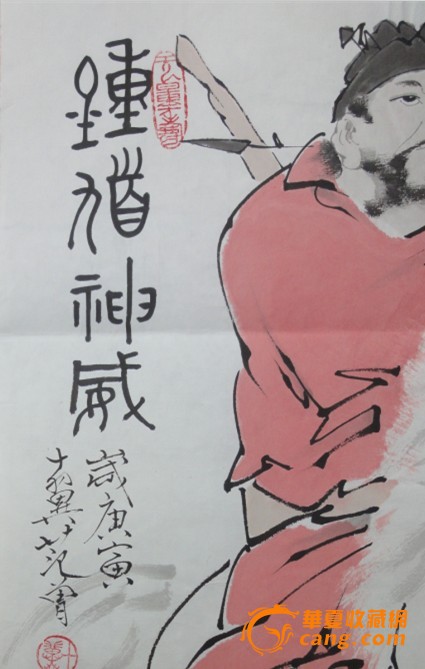 鍾馗神威
歲庚寅
十翼范曾
華夏收藏網
cang.com